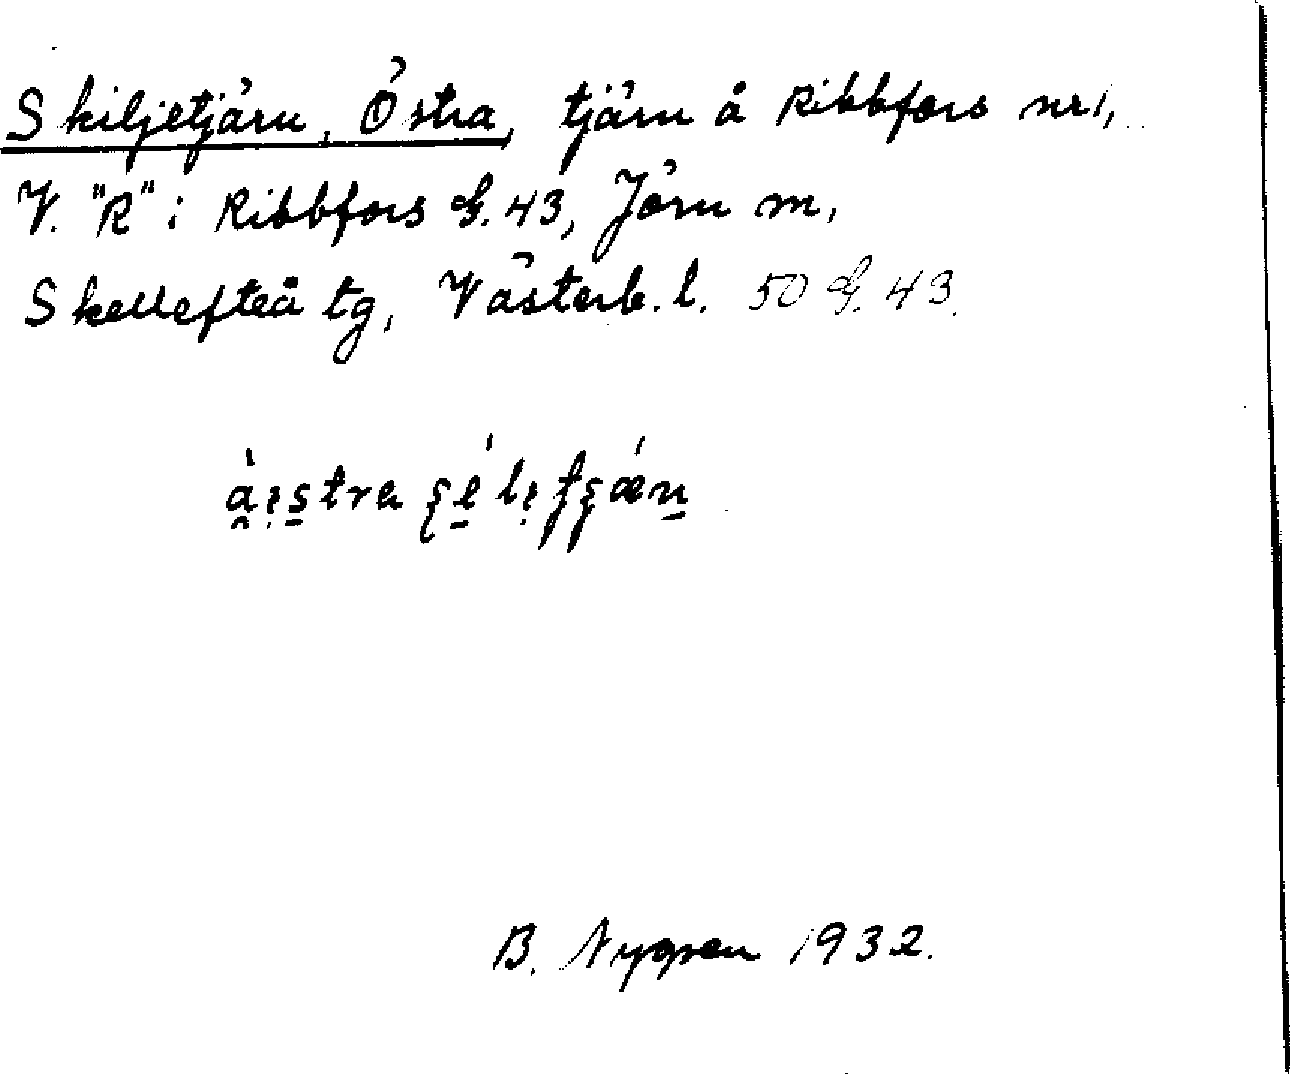 Skiljetjärn, Östra, tjärn å Ribbfors nr 1,
V. "R" i Ribbfors G. 43, Jörn m,
Skellefteå tg, Västerb. l. 50 G. 43.
B. Nygren 1932.